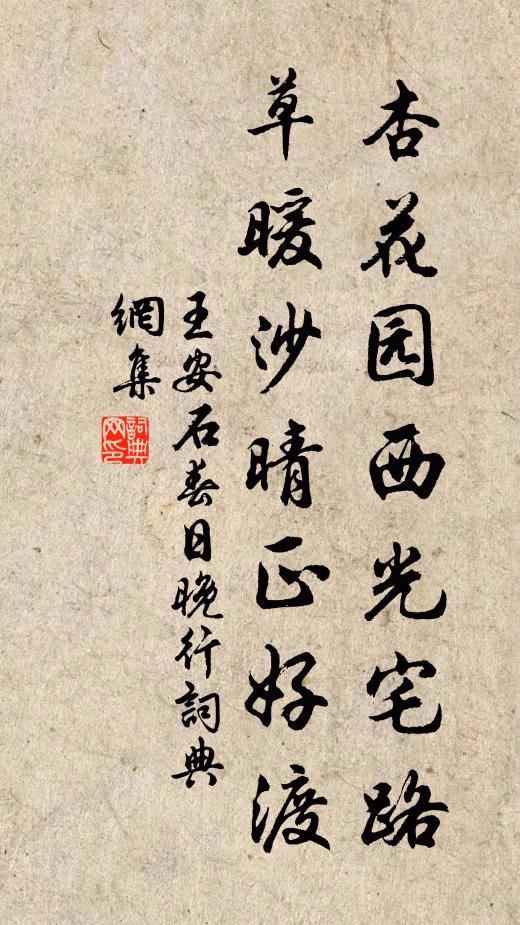 杏花园西光宅路
草暖沙晴正好渡
王安石春日晚行詞典
網集
詞典
网印